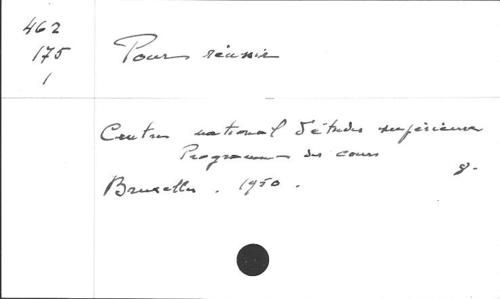 462
175
1
Pour réussir
Centre national d'études supérieures
Programme des cours
8.
Bruxelles. 1950.